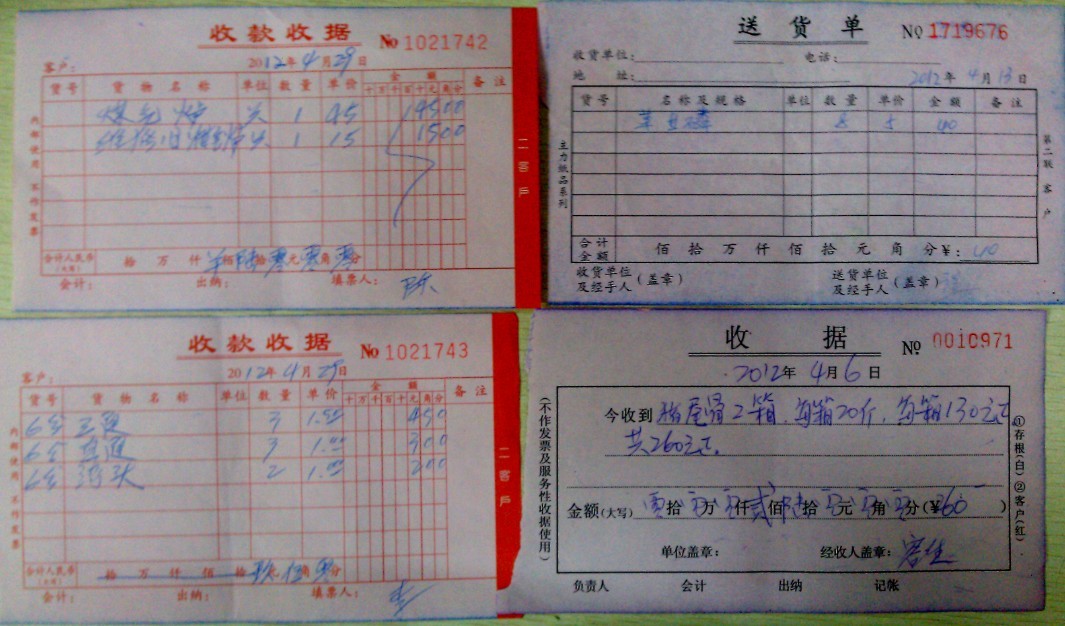 收款收据 No 1021742
客户： 2012年4月29日
货号 货物名称 单位 数量 单价 金额 备注
十万千百十元角分
煤气炉 1 45 4500
1 15 1500
内部使用 不作发票
二客户
合计人民币（大写） 拾万仟佰陆拾零元零角零分
会计： 出纳： 填票人： 陈
送货单 No 1719676
收货单位： 电话：
地址： 2012年4月13日
货号 名称及规格 单位 数量 单价 金额 备注
8 5 40
主力纸品系列
第二联 客户
合计金额 佰拾万仟佰拾元角分 ¥： 40
收货单位及经手人（盖章） 送货单位及经手人（盖章）
收款收据 No 1021743
客户： 2012年4月29日
货号 货物名称 单位 数量 单价 金额 备注
十万千百十元角分
6分 三通 3 1.50 450
6分 直通 3 1.00 300
6分 弯头 2 1.00 200
内部使用 不作发票
二客户
合计人民币（大写） 拾万仟佰拾玖元伍角零分
会计： 出纳： 填票人：
收据 No 0010971
2012年4月6日
今收到 2箱，每箱20斤，每箱130元正
共260元正，
金额（大写） 零拾零万零仟贰佰陆拾零元零角零分（¥260）
单位盖章： 经收人盖章：
负责人 会计 出纳 记帐
（不作发票及服务性收据使用）
①存根（白）②客户（红）